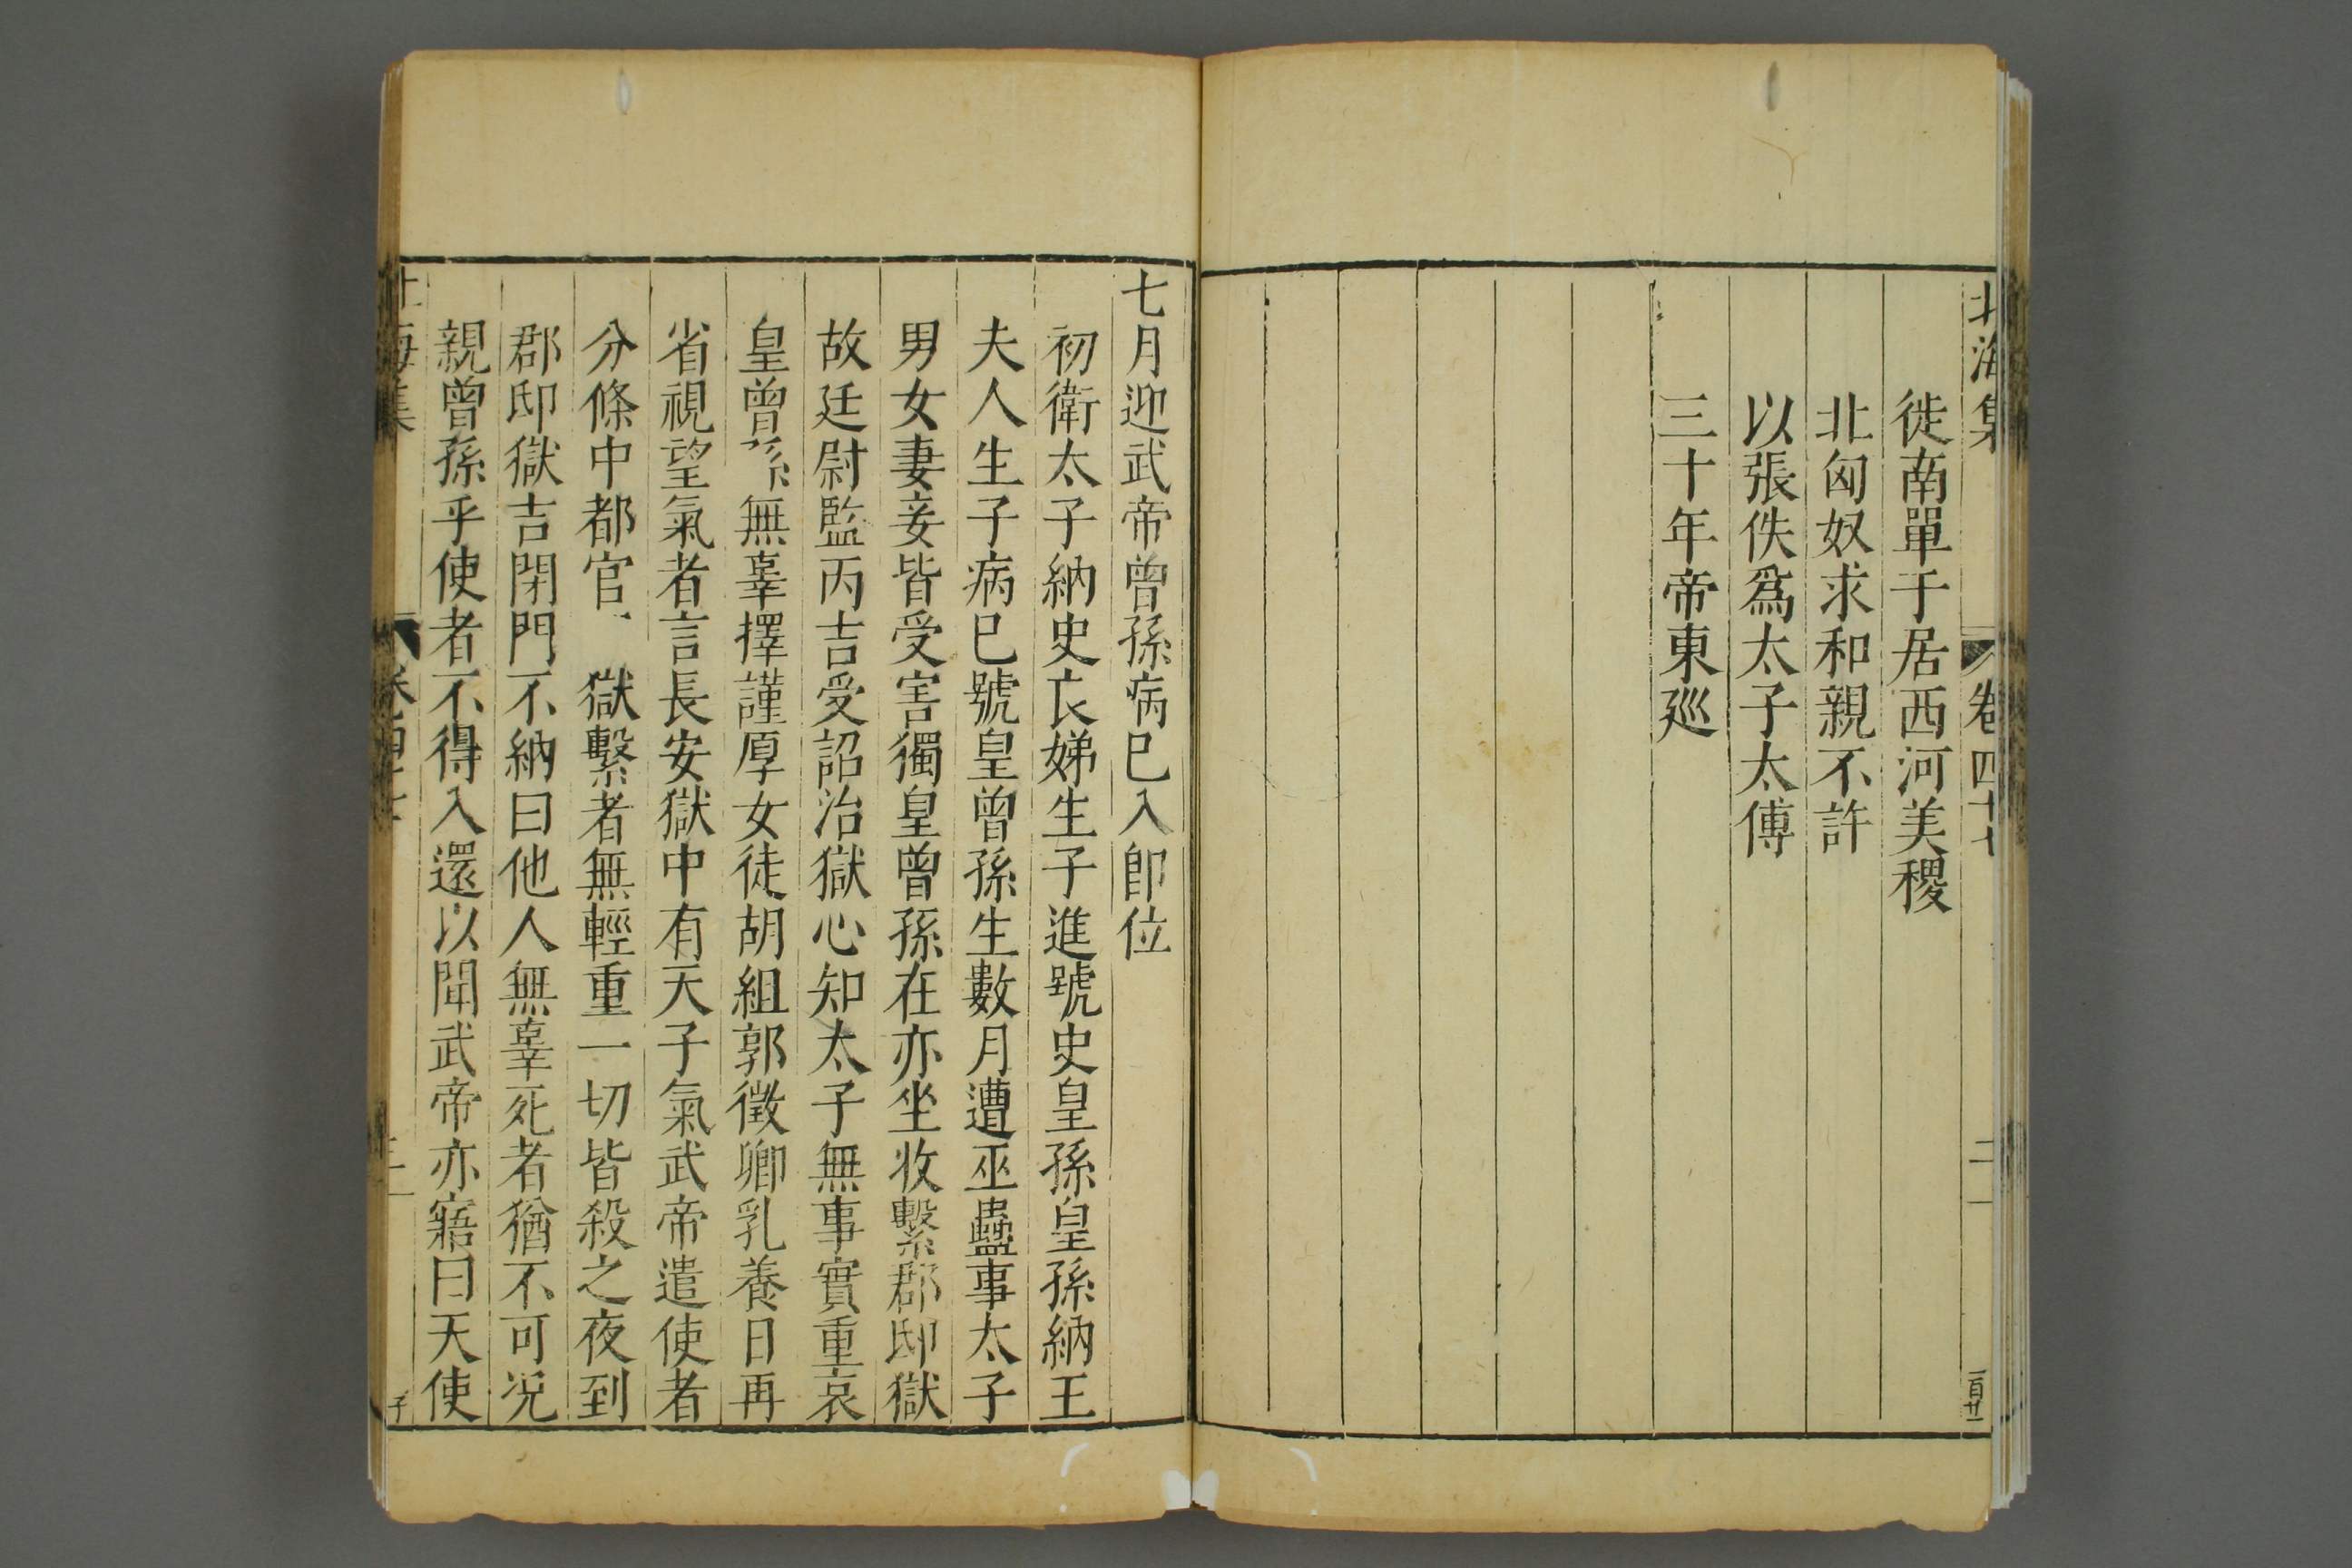 北海集 卷四十七 二 百廿一
徙南單于居西河美稷
北匈奴求和親不許
以張佚爲太子太傅
三十年帝東廵
七月迎武帝曾孫病已入卽位
初衛太子納史良娣生子進號史皇孫皇孫納王
夫人生子病已號皇曾孫生數月遭巫蠱事太子
男女妻妾皆受害獨皇曾孫在亦坐收繫郡邸獄
故廷尉監丙吉受詔治獄心知太子無事實重哀
皇曾孫無辜擇謹厚女徒胡組郭徵卿乳養日再
省視望氣者言長安獄中有天子氣武帝遣使者
分條中都官 獄繫者無輕重一切皆殺之夜到
郡邸獄吉閉門不納曰他人無辜死者猶不可况
親曾孫乎使者不得入還以聞武帝亦寤曰天使